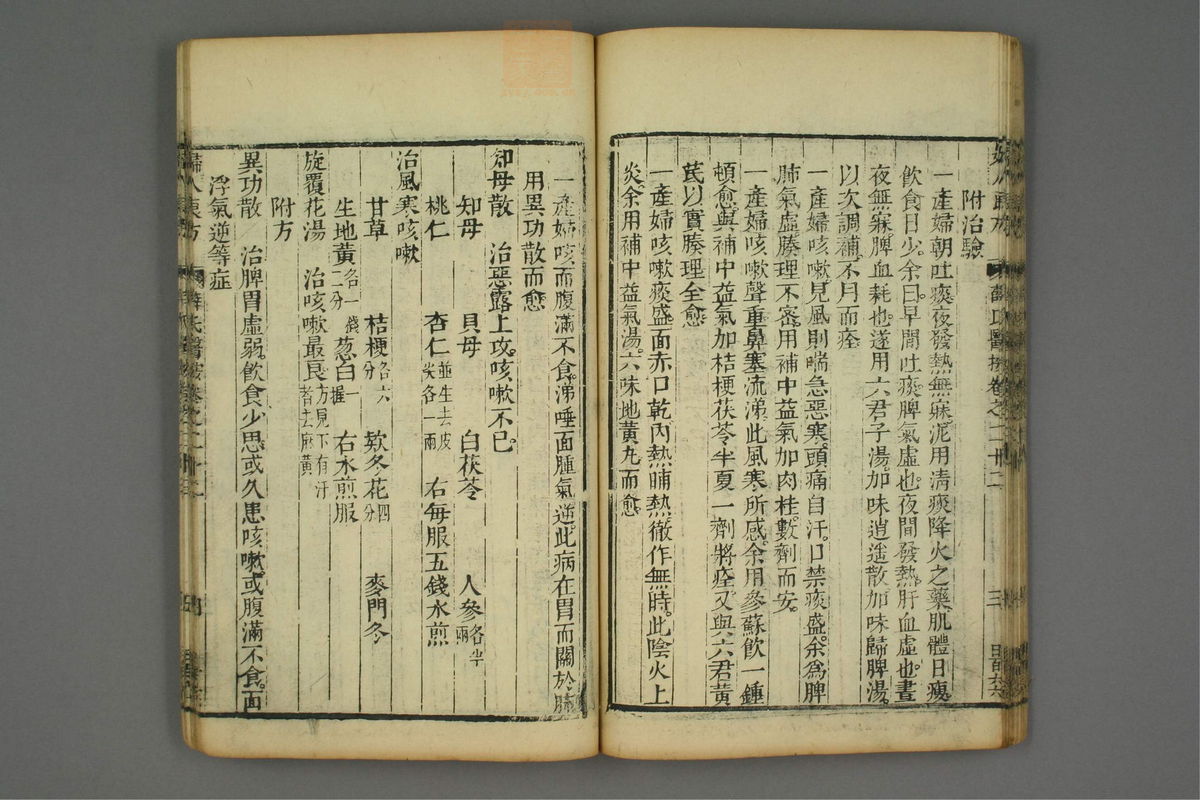 附治驗
一產婦朝吐痰夜發熱無寐泥用清痰降火之藥肌體日瘦
飲食日少余曰早間吐痰脾氣虛也夜間發熱肝血虛也晝
夜無寐脾血耗也遂用六君子湯加味逍遥散加味歸脾湯
以次調補不月而痊
一產婦咳嗽見風則喘急惡寒頭痛自汗口禁痰盛余爲脾
肺氣虛腠理不密用補中益氣加肉桂數劑而安
一產婦咳嗽聲重鼻塞流涕此風寒所感余用參蘇飲一鍾
頓愈與補中益氣加桔梗茯苓半夏一劑將痊又與六君黄
芪以實腠理全愈
一產婦咳嗽痰盛面赤口乾内熱晡熱徹作無時此陰火上
炎余用補中益氣湯六味地黄丸而愈
一產婦咳而腹滿不食涕唾面腫氣逆此病在胃而關於肺
用異功散而愈
知母散 治惡露上攻咳嗽不已
知母 貝母 白茯苓 人參各半兩
桃仁 杏仁並生去皮尖各一兩 右每服五錢水煎
治風寒咳嗽
甘草 桔梗各六分 款冬花四分 麥門冬
生地黄各一錢二分 葱白一握 右水煎服
旋覆花湯 治咳嗽最良方見下有汗者去麻黄
附方
異功散 治脾胃虛弱飲食少思或久患咳嗽或腹滿不食面
浮氣逆等症
婦人良方